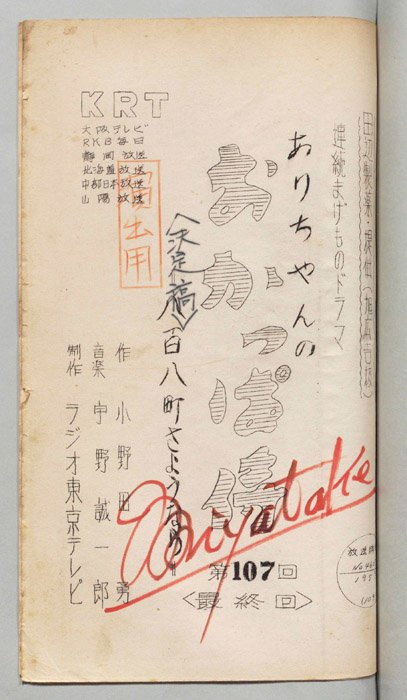 田辺製薬・提供
連続まげものドラマ
ありちゃんの
おかっぱ侍
第107回
<最終回>
<決定稿>
八百八町さようなり〃
演出用
KRT
大阪テレビ
RKB毎日
静岡放送
北海道放送
中部日本放送
山陽放送
作 小野田 勇
音楽 宇野誠一郎
制作 ラジオ東京テレビ
Miyatake